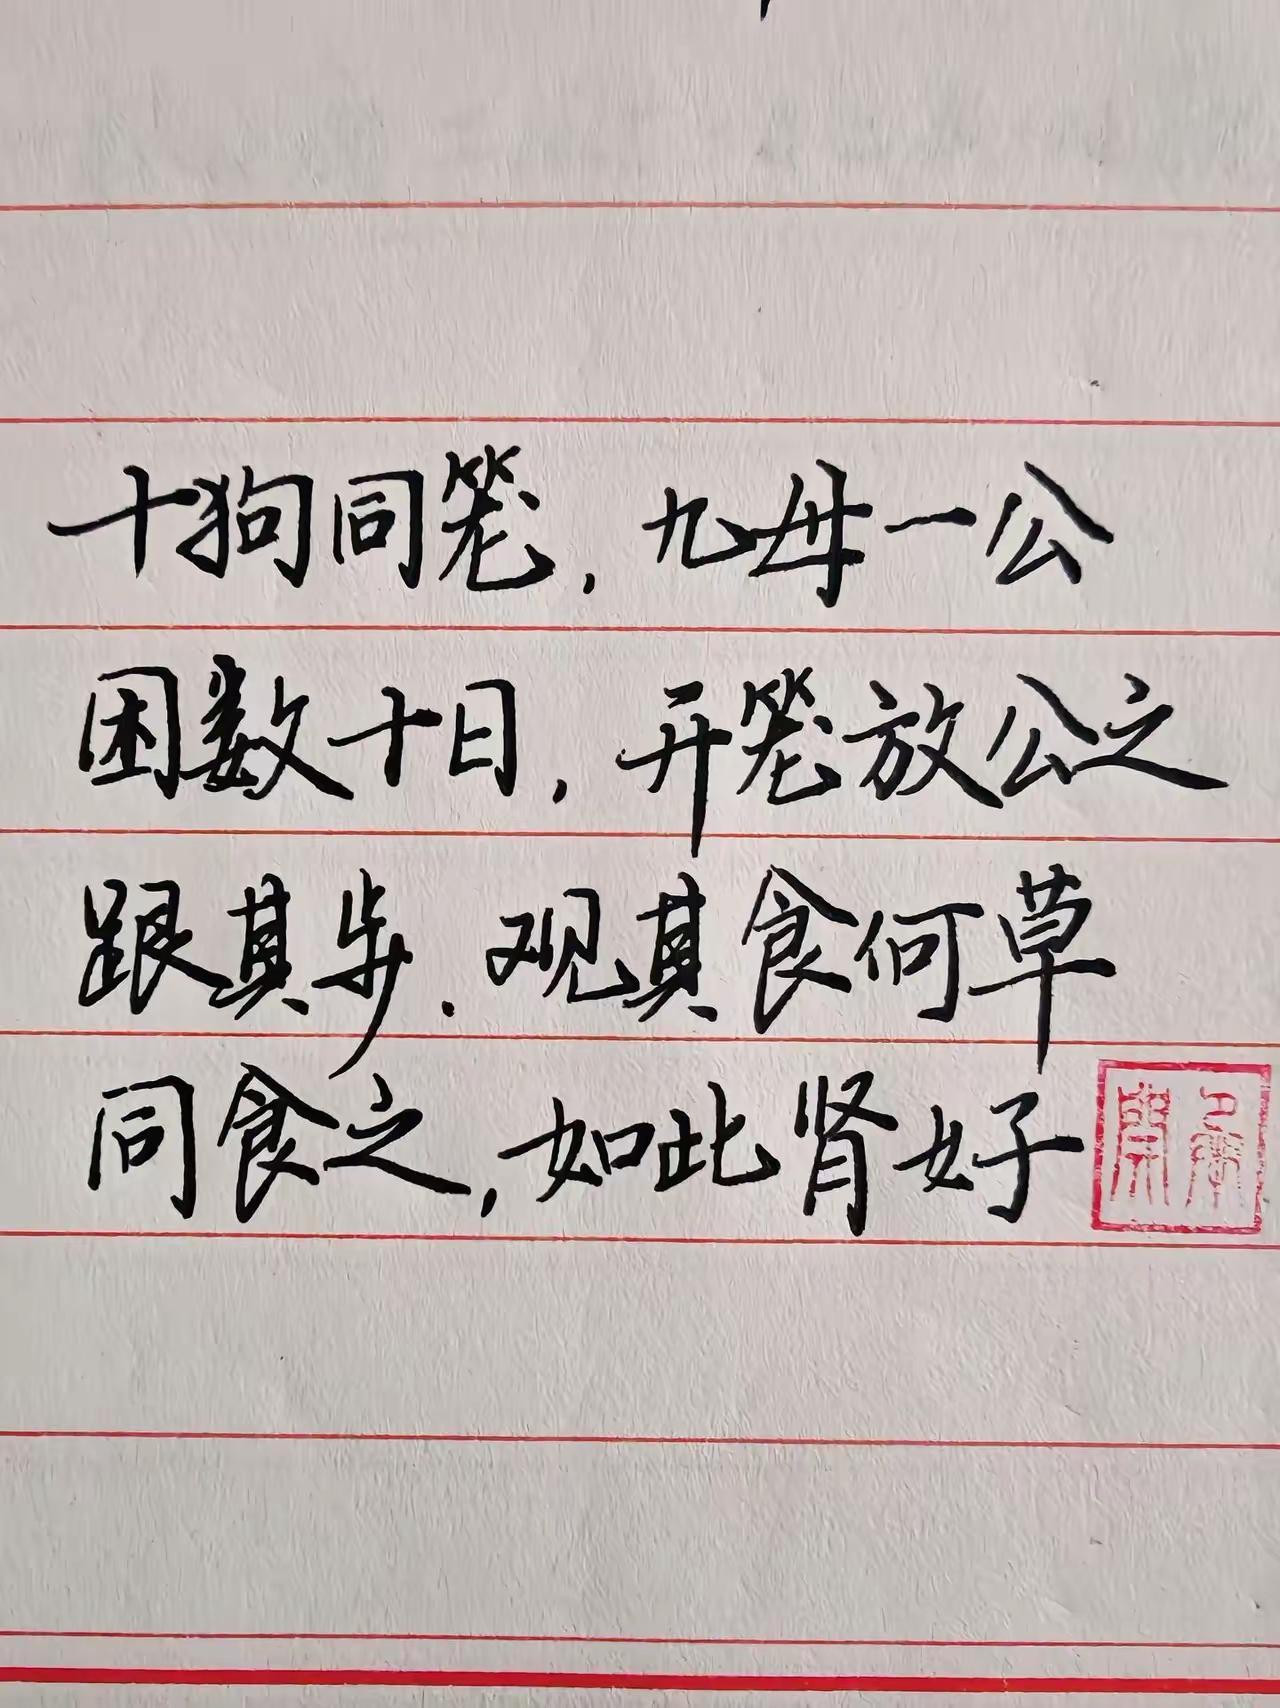 十狗同笼，九母一公
困数十日，开笼放公之
跟其步．观其食何草
同食之，如此肾好